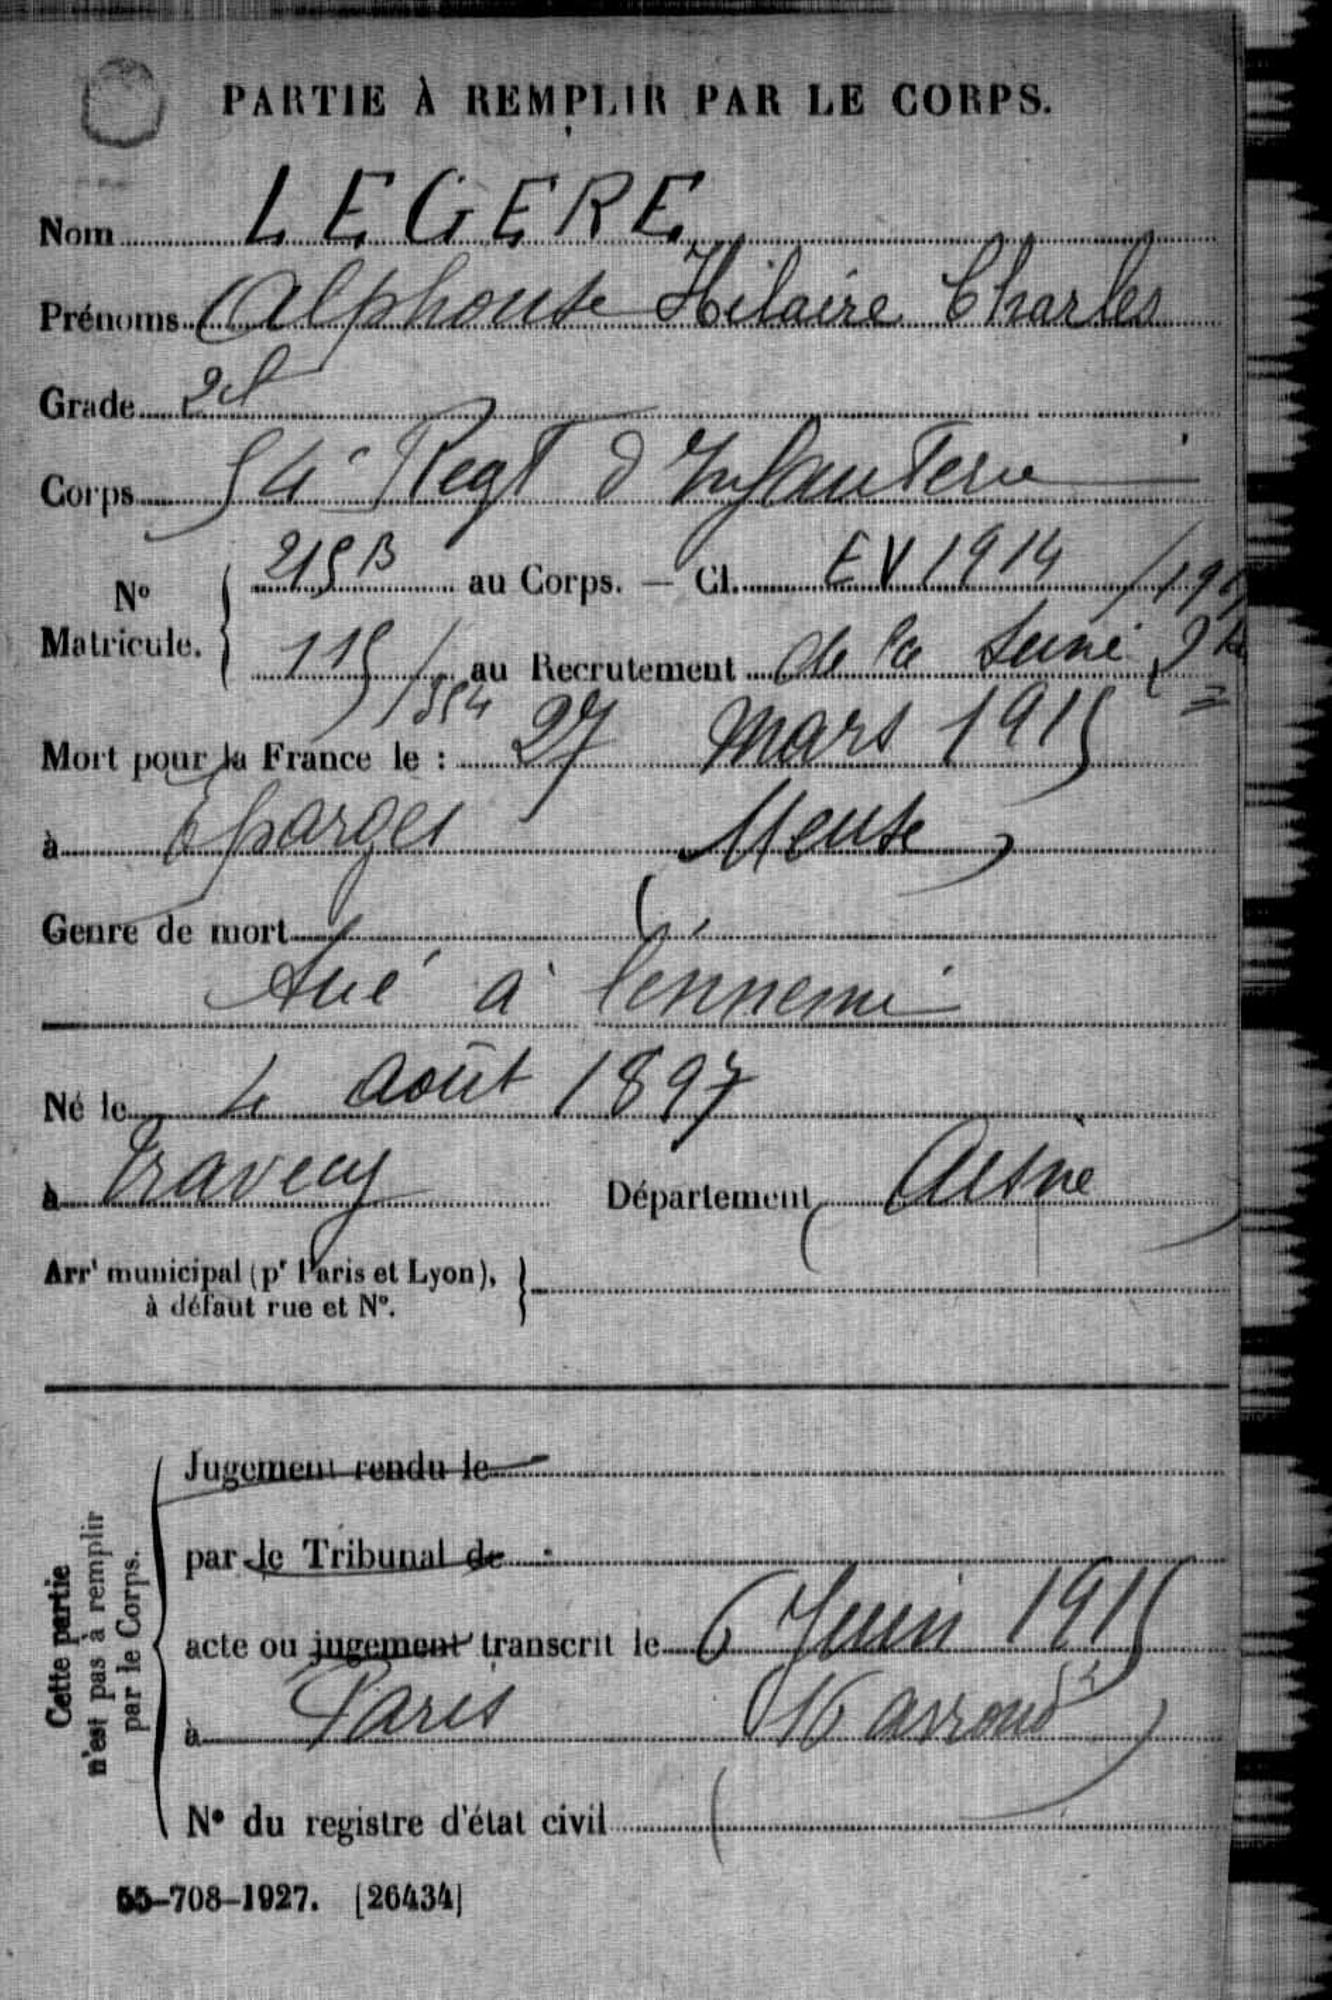 PARTIE À REMPLIR PAR LE CORPS.
Nom LEGERE
Prénoms Alphonse Hilaire Charles
Grade 2e
Corps 54e Regt d'Infanterie
No Matricule. 215B au Corps. — Cl. EV 1914 / 191
115 / 354 au Recrutement de la Seine 2e
Mort pour la France le : 27 mars 1915
à Eparges (Meuse)
Genre de mort
tué à l'ennemi
Né le 4 août 1897
à Travecy Département (Aisne)
Arrt municipal (pr Paris et Lyon),
à défaut rue et No.
Cette partie
n'est pas à remplir
par le Corps.
Jugement rendu le
par le Tribunal de
acte ou jugement transcrit le 6 Juin 1915
à Paris (16 arrondt)
No du registre d'état civil
55-708-1927. [26434]